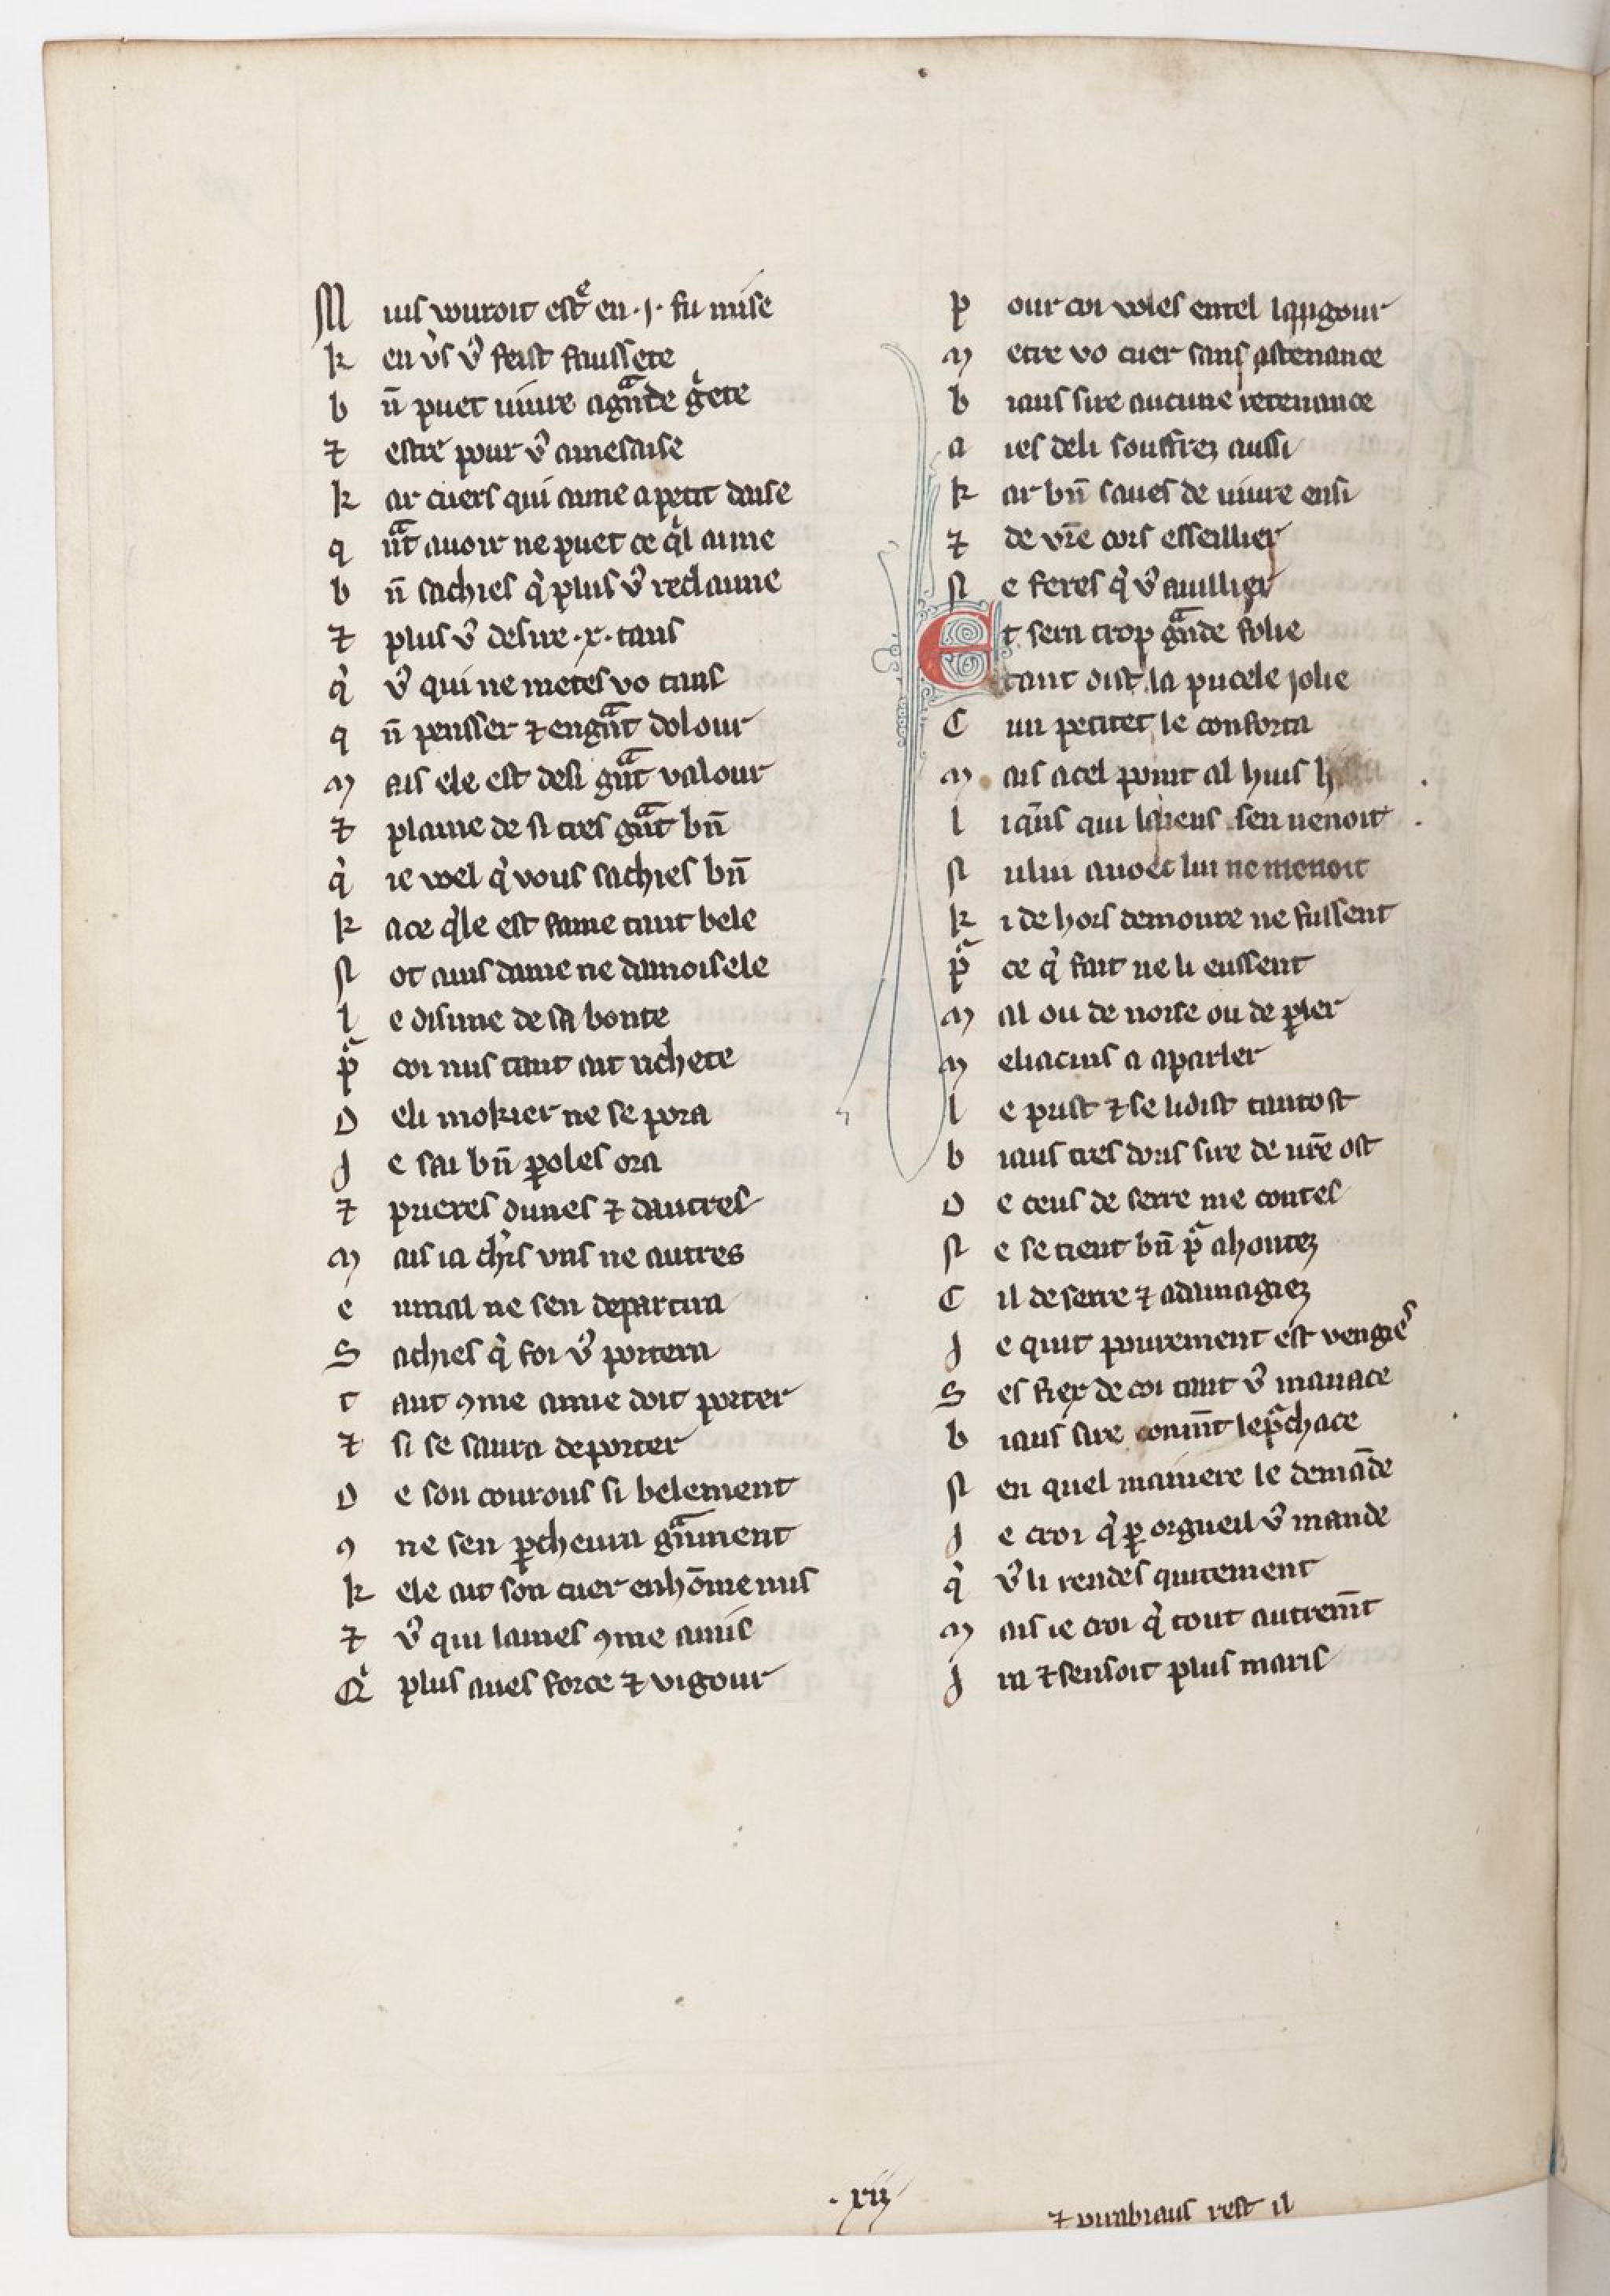 M ius vuroit estᵉ en ·j· fu mise
k en v̾s v̾ feist fausseté
b n̄ puet uiure a gᵃnde gͥete
⁊ estre pour v̾ a mesaise
k ar cuers qui aime a petit daise
q nᵃt auoir ne puet ce qͥl aime
b n̄ sachies qͥ plus v̾ reclaime
⁊ plus v̾ desire ·x· tans
qͥ v̾ qui ne metes vo tans
q n̄ penser ⁊ en gᵃnt dolour
m ais ele est de si gᵃnt valour
⁊ plaine de si tres gᵃnt bn̄
qͥ ie voel qͥ vous sachies bn̄
k a ce qͥle est fame tant bele
n ot ains dame ne damoisele
l e disme de sa bonte
pᵃ coi nus tant ait richete
D e li mokier ne se pora
J e sai bn̄ ꝑoles ora
⁊ prieres dunes ⁊ dautres
m ais ia ch̾is vns ne autres
e nmal ne sen departira
S achies qͥ foi v̾ portera
t ant ꝯme amie doit porter
⁊ si se saura deporter
D e son courous si belement
ꝯ ne sen ꝑcheura gᵃnment
k ele ait son cuer en hōme mis
⁊ v̾ qui lames ꝯme amis
Qͥ plus aues force ⁊ vigour
p our coi voles en tel langour
m etre vo cuer sans astenance
b iaus sire aucune retenance
a ies de li souffrez aussi
k ar bn̄ saues de uiure ensi
⁊ de vr̄e cors esseillier
N e feres qͥ v̾ auillier
Et sera trop gᵃnde folie
tant dist la pucele jolie
C un petitet le conforta
m ais a cel point al huis h
l iqn̄s qui laiens sen uenoit
N ului auoec lui ne menoit
k i de hors demoure ne fussent
pᵃ ce qͥ fait ne li eussent
m al ou de noise ou de ꝑler
m eliacins a aparler
l e prist ⁊ se li dist tantost
b iaus tres dous sire de ur̄e ost
D e ceus de serre me contes
N e se tient bn̄ pᵃ ahontez
C il de serre ⁊ adamagiez
J e quit pourement est vengies
S es fiex de coi tant v̾ manace
b iaus sire conmn̄t le pᵃchace
N en quel maniere le demāde
J e croi qͥ ꝑ orgueil v̾ mande
qͥ v̾ li rendes quitement
m ais ie croi qͥ tout autremn̄t
J ra ⁊ sen soit plus maris
·xij
⁊ purabiaus rest il